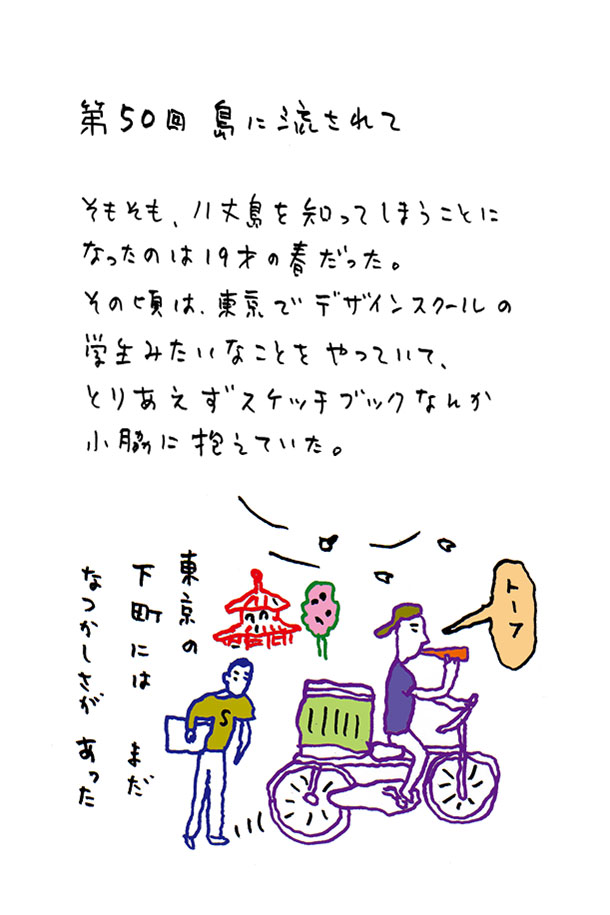 第50回 島に流されて
そもそも、八丈島を知ってしまうことに
なったのは19才の春だった。
その頃は、東京でデザインスクールの
学生みたいなことをやっていて、
とりあえずスケッチブックなんか
小脇に抱えていた。
東京の
下町には まだ
なつかしさが あった
トーフ
S